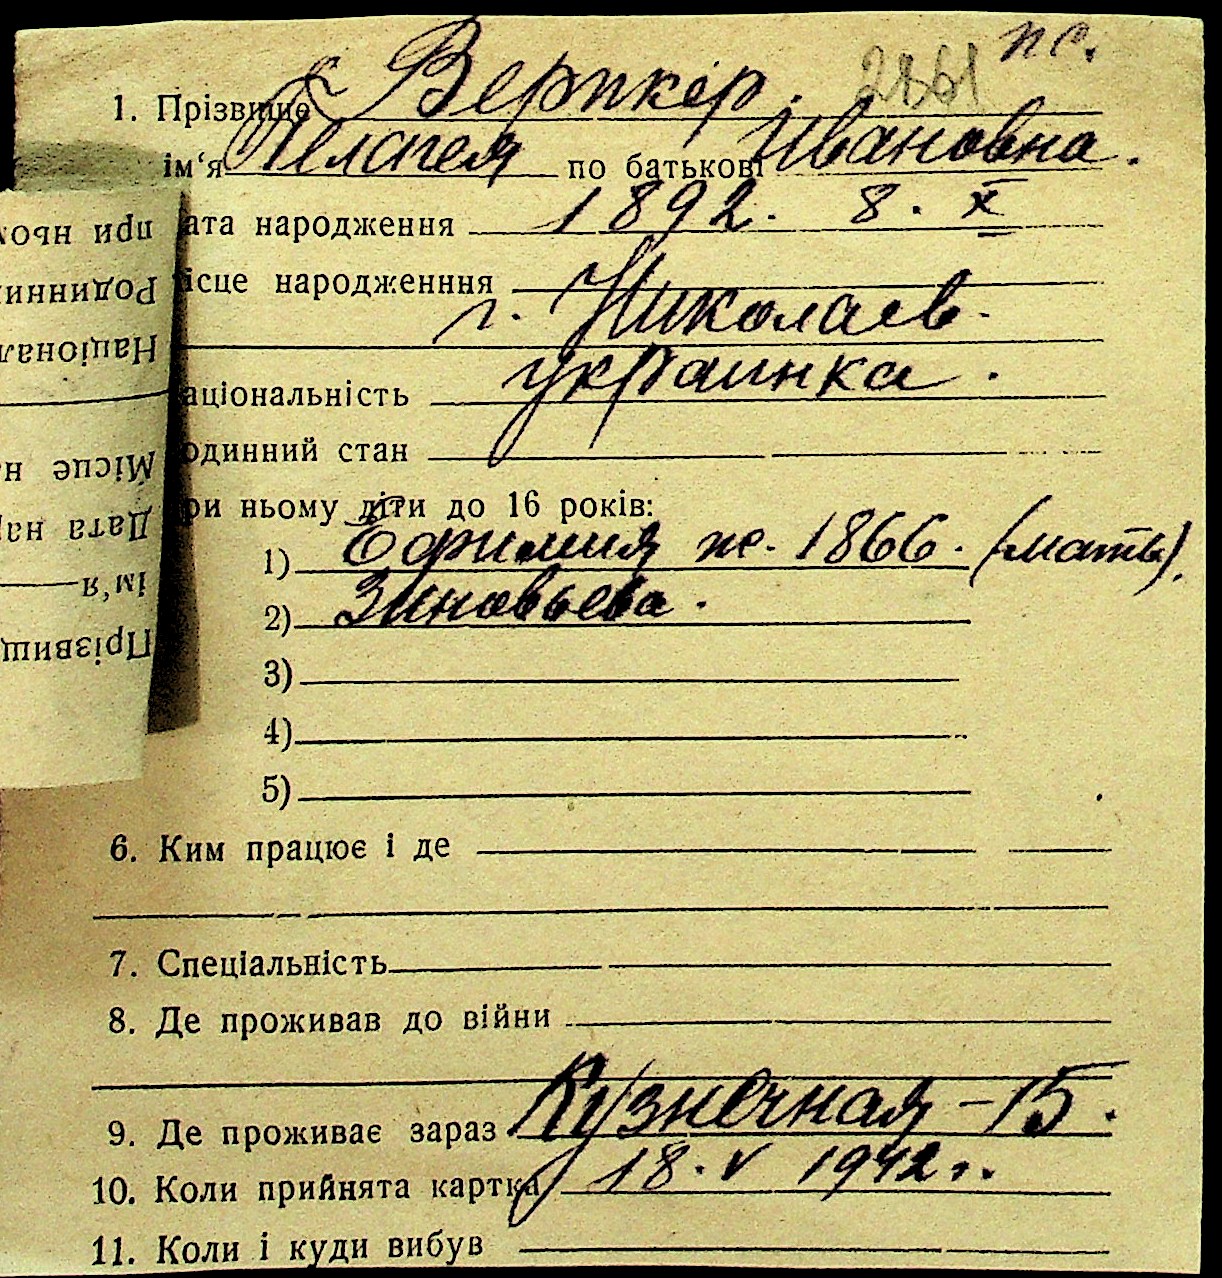 пс.
2861
1. Прізвище Верпкер.
ім‘я Пелагея по батькові Ивановна.
ата народження 1892. 8. X
ісце народженння
г. Николаев.
аціональність украинка.
одинний стан
ри ньому діти до 16 років:
1) Ефимия ж. 1866. (мать).
2) Зиновьева.
3)
4)
5)
6. Ким працює і де
7. Спеціальність
8. Де проживав до війни
9. Де проживає зараз Кузнечная – 15.
10. Коли прийнята картка 18. V 1942 г.
11. Коли і куди вибув
Прізвищ
ім‘я
Дата нар
Місце н
Націонал
Родинни
при ньом